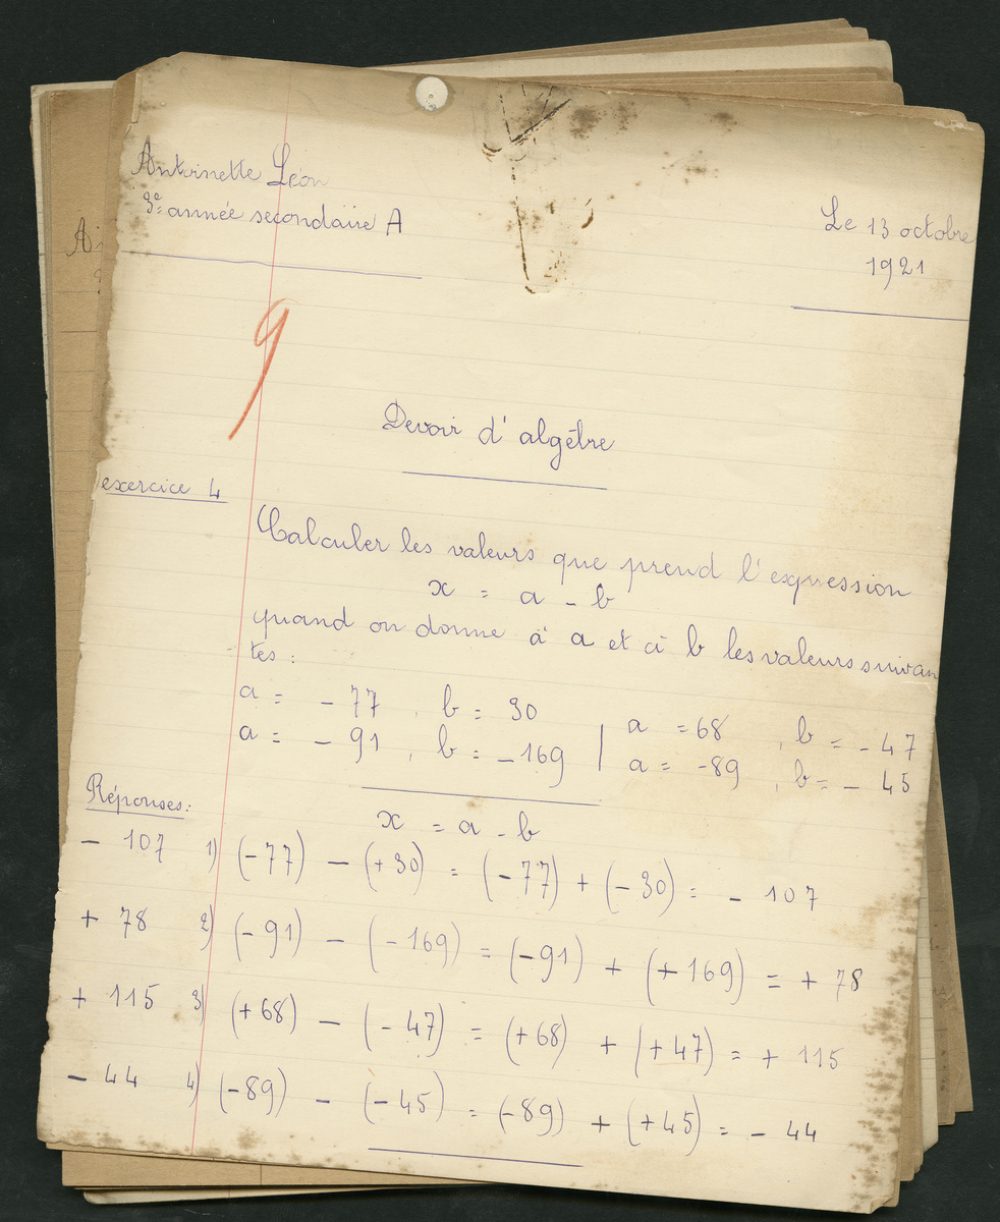 Antoinette Léon
3e année secondaire A
Le 13 octobre
1921
9
Devoir d'algèbre
exercice 4
Calculer les valeurs que prend l'expression
x = a - b
quand on donne à a et à b les valeurs suivan
tes :
a = - 77 , b = 30 | a = 68 , b = - 47
a = - 91 , b = - 169 | a = -89 , b = - 45
Réponses:
x = a - b
- 107 1) (-77) - (+30) = (-77) + (-30) = - 107
+ 78 2) (-91) - (-169) = (-91) + (+169) = + 78
+ 115 3) (+68) - (-47) = (+68) + (+47) = + 115
- 44 4) (-89) - (-45) = (-89) + (+45) = - 44